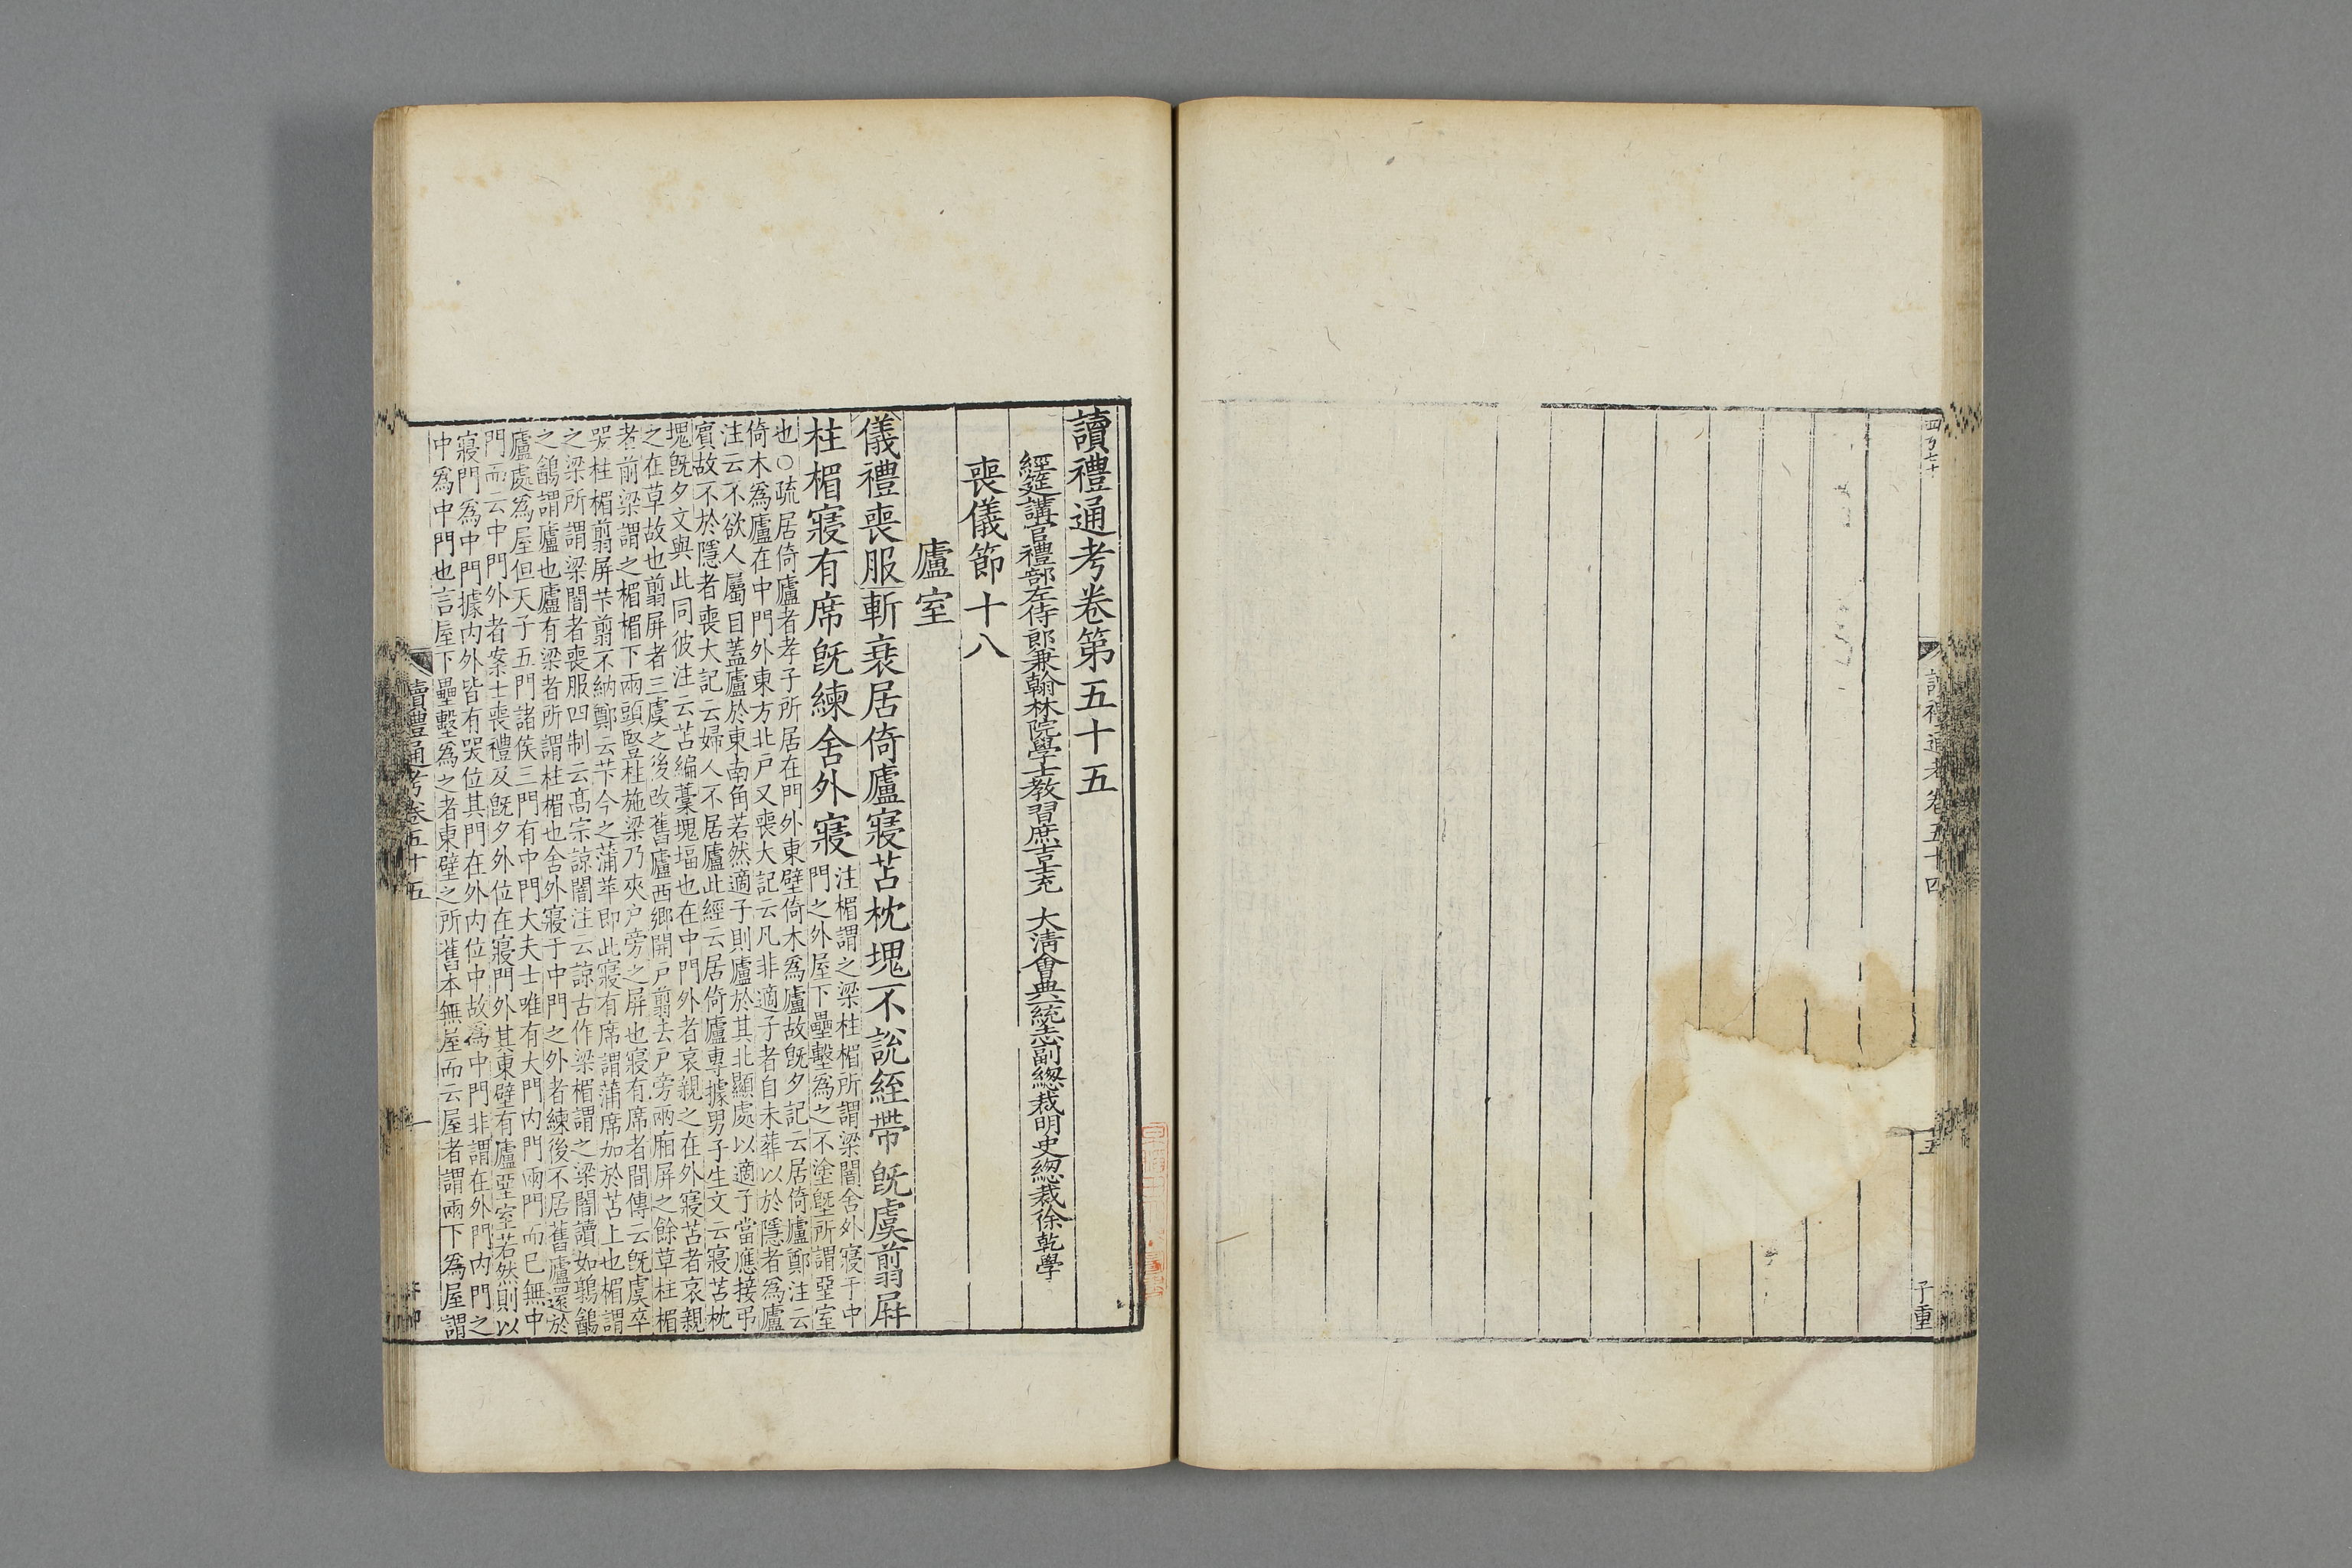 讀禮通考卷五十四
子重
讀禮通考卷第五十五
經筵講官禮部左侍郎兼翰林院學士教習庶吉士充　大清會典一統志副總裁明史總裁徐乾學
喪儀節十八
廬室
儀禮喪服斬衰居倚廬寢苫枕塊不說絰帶既虞翦屏
柱楣寢有席既練舍外寢
注楣謂之梁柱楣所謂梁闇舍外寢于中
門之外屋下壘墼為之不塗塈所謂堊室
也○疏居倚廬者孝子所居在門外東壁倚木為廬故既夕記云居倚廬鄭注云
倚木為廬在中門外東方北戶又喪大記云凡非適子者自未葬以於隱者為廬
注云不欲人屬目蓋廬於東南角若然適子則廬於其北顯處以適子當應接弔
賔故不於隱者喪大記云婦人不居廬此經云居倚廬專據男子生文云寢苫枕
塊既夕文與此同彼注云苫編藁塊堛也在中門外者哀親之在外寢苫者哀親
之在草故也翦屏者三虞之後改舊廬西鄉開戶翦去戶旁兩廂屏之餘草柱楣
者前梁謂之楣楣下兩頭豎柱施梁乃夾戶旁之屏也寢有席者間傳云既虞卒
哭柱楣翦屏芐翦不納鄭云芐今之蒲苹即此寢有席謂蒲席加於苫上也楣謂
之梁所謂梁闇者喪服四制云高宗諒闇注云諒古作梁楣謂之梁闇讀如鶉鷂
之鷂謂廬也廬有梁者所謂柱楣也舍外寢于中門之外者練後不居舊廬還於
廬處為屋但天子五門諸侯三門有中門大夫士唯有大門內門兩門而已無中
門而云中門外者案士喪禮及既夕外位在寢門外其東壁有廬堊室若然則以
寢門為中門據內外皆有哭位其門在外內位中故為中門非謂在外門內門之
中為中門也言屋下壘墼為之者東壁之所舊本無屋而云屋者謂兩下為屋謂
讀禮通考卷五十五
一